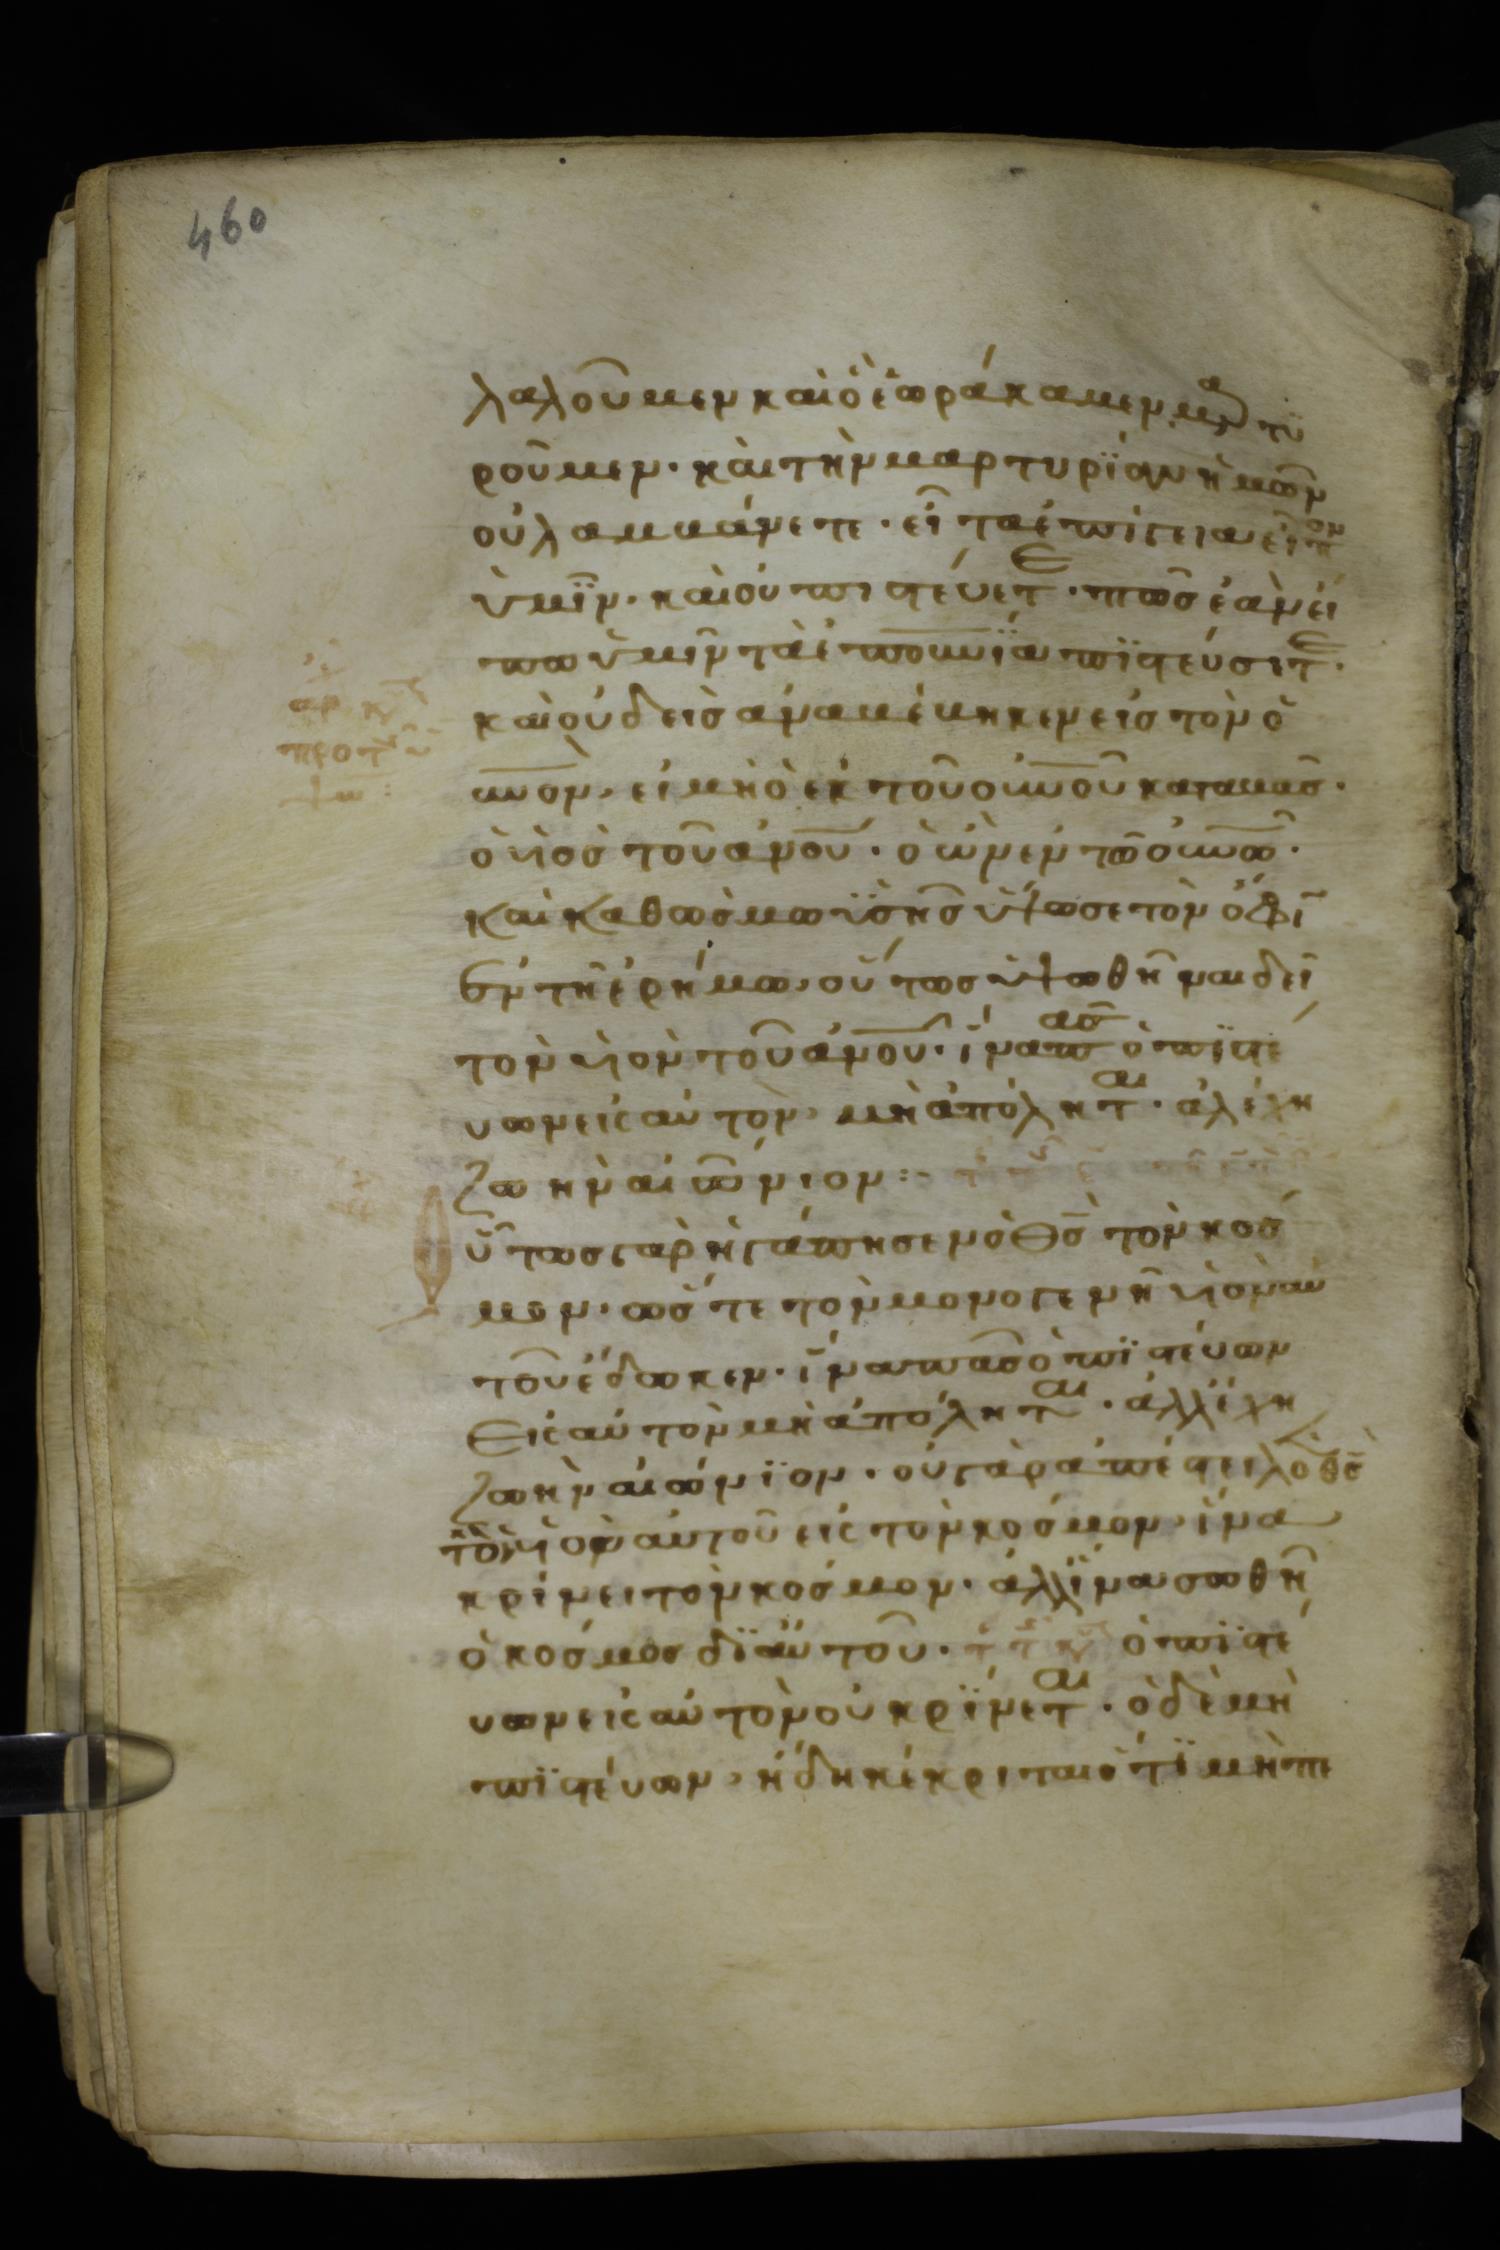 460
λαλοῦμεν καὶ ὃ ἑωράκαμεν μαρτυ
ροῦμεν· καὶ τὴν μαρτυρΐαν ἡμῶν
οὐ λαμβάνετε· εἶ τα ἐπίγεια εἶπον
ὑμῖν· καὶ οὐ πιστεύετε· πῶσ ἐὰν εἴ
πω ὑμῖν τὰ ἐπουνΐα πϊστεύσιτε·
καὶ οὐδεὶσ αναβέβηκεν εἰσ τὸν ὀ
υνὸν, εἰ μὴ ὁ ἐκ τοῦ οὐνοῦ καταβασ·
ὁ υἱὸσ τοῦ ἀνου· ὁ ὢν ἐν τῶ οὐνῶ·
καὶ καθὼσ μωϋσῆσ ὕψωσε τὸν ὄφϊ
ἐν τῆ ἐρήμω, οὕτωσ ὑψωθῆναι δεῖ
τὸν υἱὸν τοῦ ἀνου· ἵνα πασ ὁ πϊστέ
υων εἰς αὐτὸν, μὴ ἀπόληται· ἀλ ἔχη
ζωὴν αἰώνιον :-
ὕτωσ γὰρ ἠγάπησεν ὁ θσ τὸν κόσ
μον· ὥστε τὸν μονογενῆ υἱὸν αὐ
τοῦ ἔδωκεν· ἵνα πασ ὁ πϊστεύων
εἰς αὐτὸν μὴ ἀπόληται· ἀλλ ἔχη
ζωὴν αἰώνϊον· οὐ γὰρ ἀπέστειλεν ὁ θσ
τὸν υἱὸν αὐτοῦ εἰς τὸν κόσμον, ἵνα
κρίνει τὸν κόσμον· ἀλλ ἵνα σωθῆ
ὁ κόσμοσ δϊ αὐτοῦ· ὁ πϊστέ
υων εἰς αὐτὸν οὐ κρΐνεται· ὁ δὲ μὴ
πϊστεύων, ἤδη κέκριται ὅτϊ μὴ πε